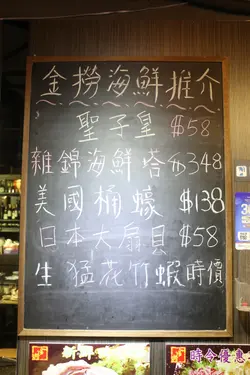 金撈海鮮推介
聖子皇 $58
雜錦海鮮塔 $348
美國桶蠔 $138
日本大扇貝 $58
生猛花竹蝦 時價
時令優惠